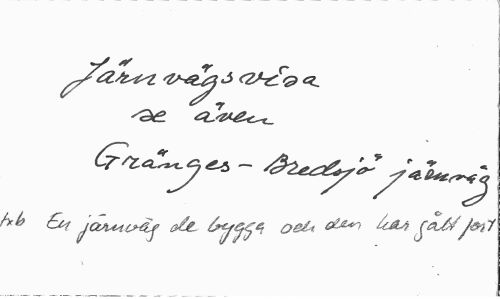 Järnvägsvisa
se även
Gränges-Bredsjö järnväg
txb En järnväg de bygga och den har gått fort